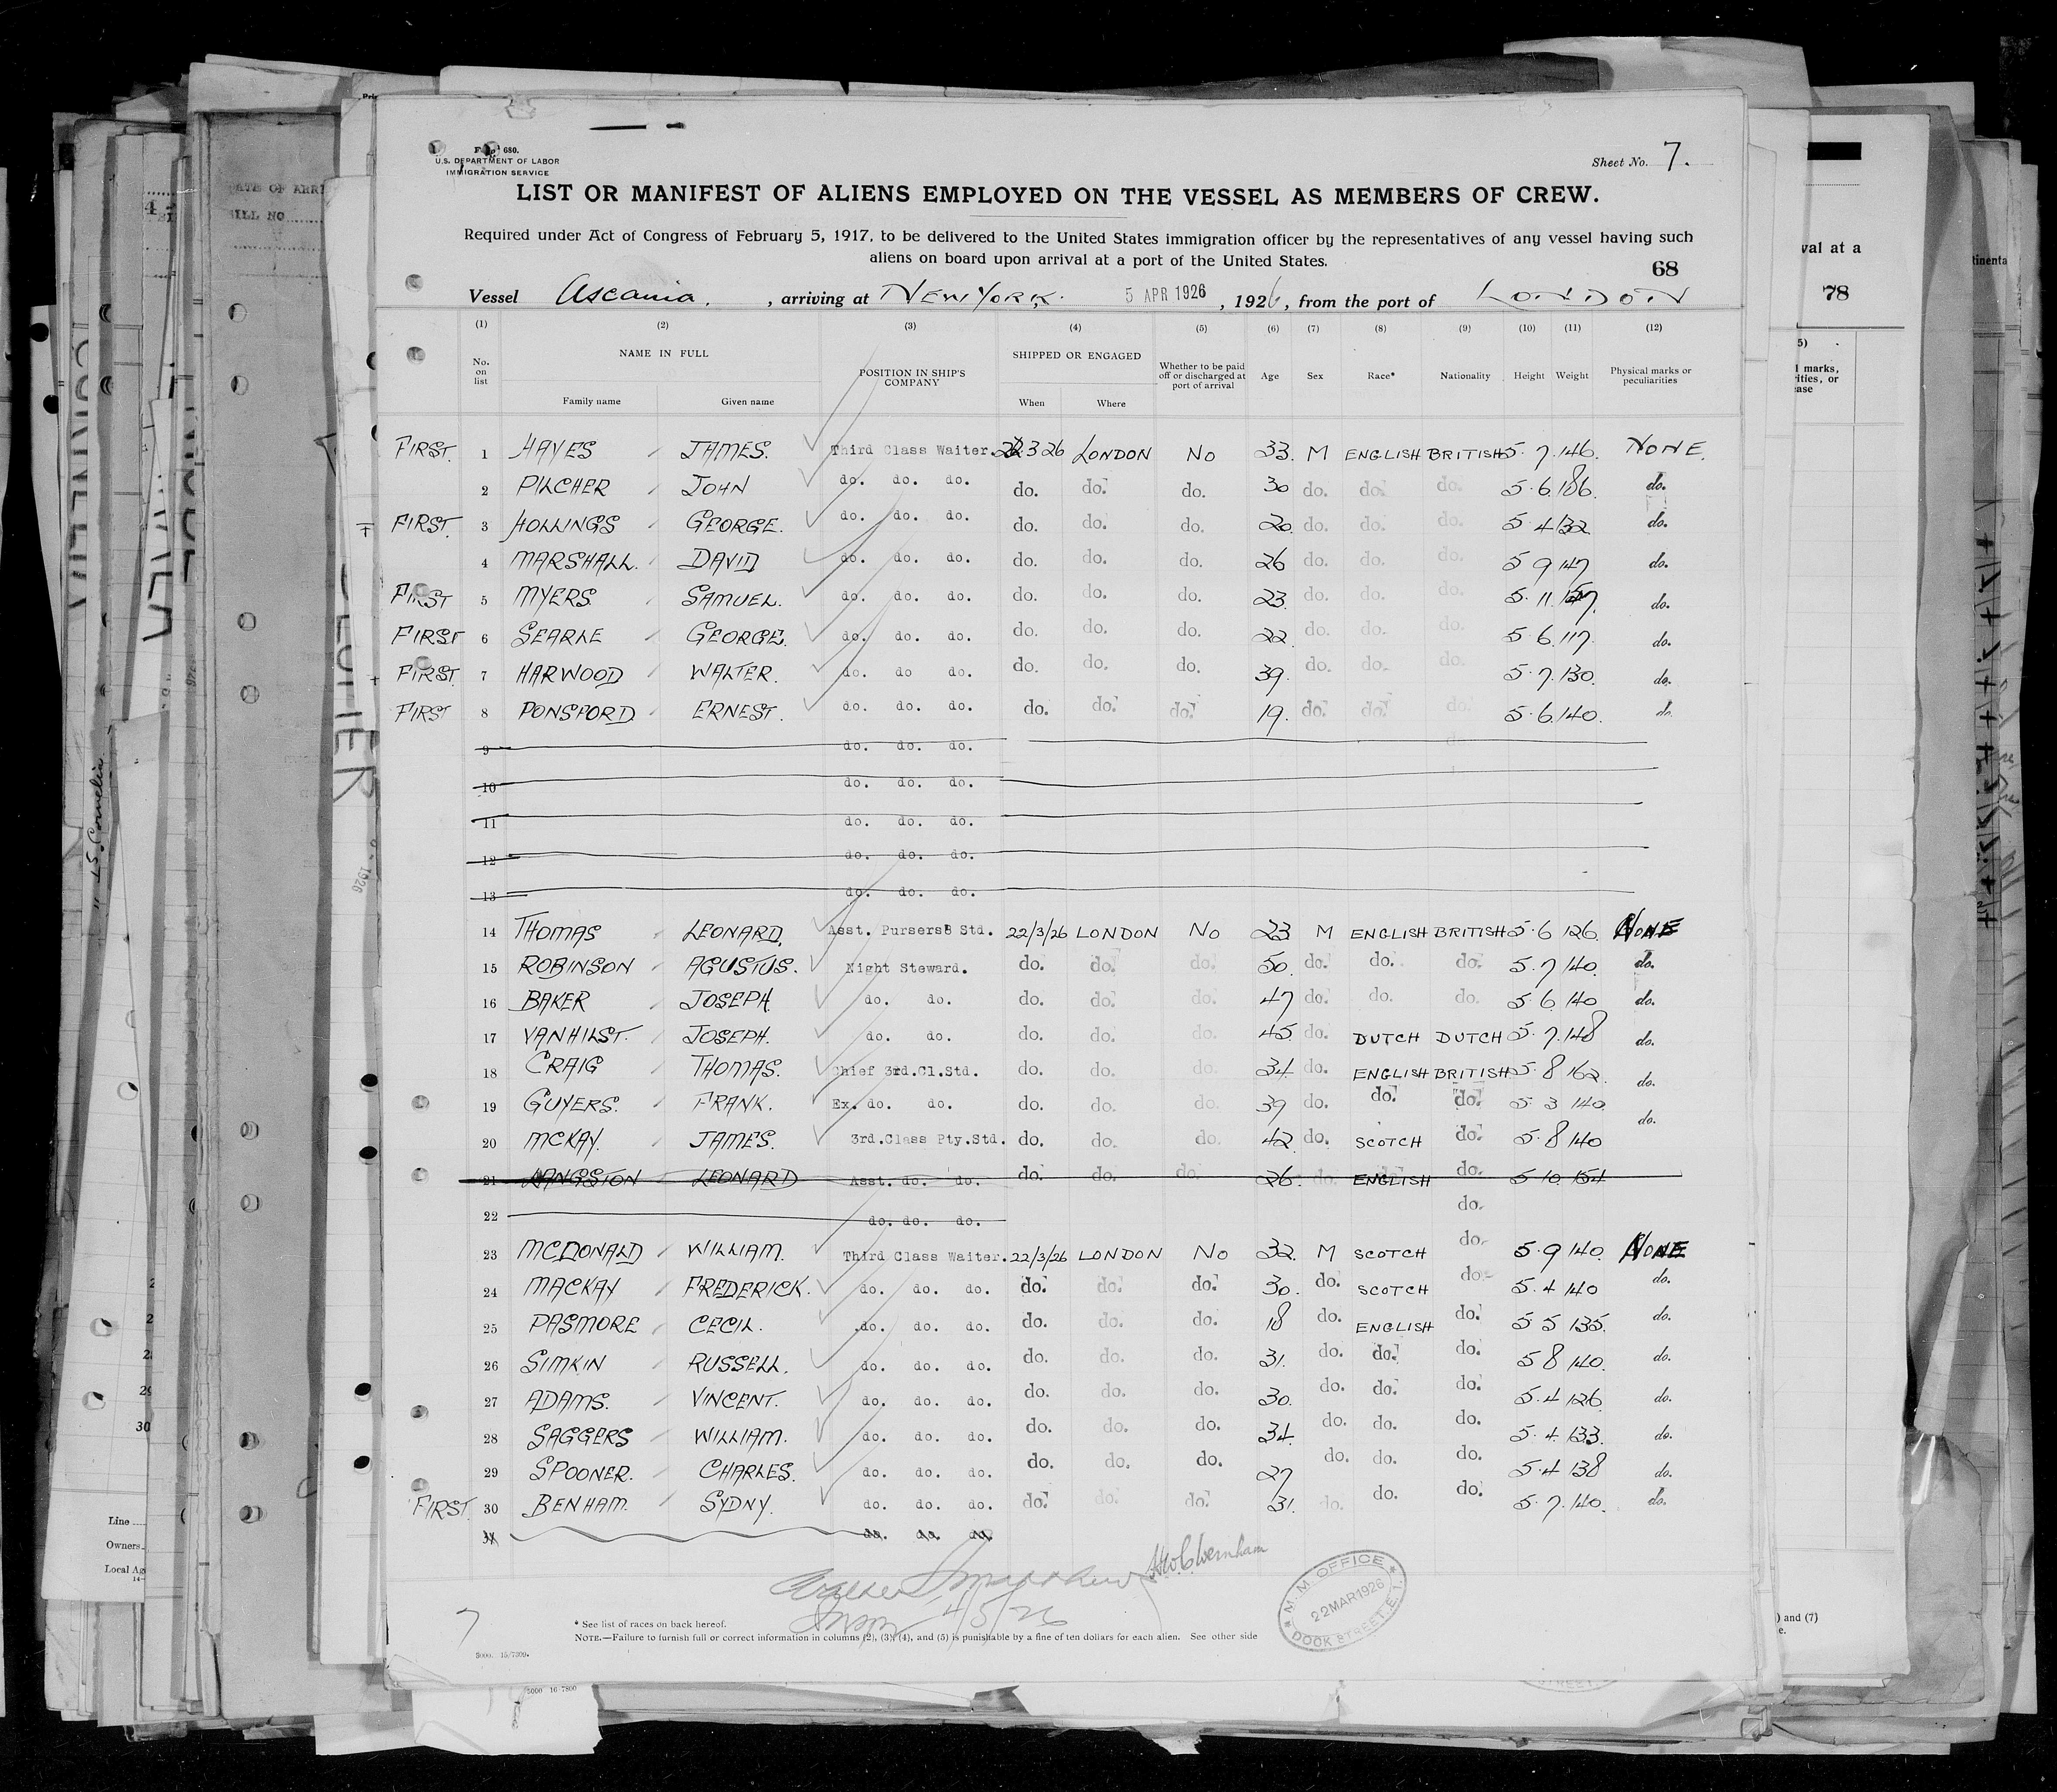 Form 680.
U.S. DEPARTMENT OF LABOR
IMMIGRATION SERVICE
Sheet No. 7.
LIST OR MANIFEST OF ALIENS EMPLOYED ON THE VESSEL AS MEMBERS OF CREW.
Required under Act of Congress of February 5, 1917, to be delivered to the United States immigration officer by the representatives of any vessel having such
aliens on board upon arrival at a port of the United States.
68
Vessel Ascania. , arriving at NEW YORK. 5 APR 1926 , 1926, from the port of LONDON
(1) (2) (3) (4) (5) (6) (7) (8) (9) (10) (11) (12)
No. on list NAME IN FULL Family name Given name POSITION IN SHIP'S COMPANY SHIPPED OR ENGAGED When Where Whether to be paid off or discharged at port of arrival Age Sex Race* Nationality Height Weight Physical marks or peculiarities
FIRST. 1 HAYES JAMES. Third Class Waiter. 22 3 26 LONDON NO 33. M ENGLISH BRITISH 5. 7. 146. NONE.
2 PILCHER JOHN do. do. do. do. do. do. 30 do. do. do. 5.6. 186. do.
FIRST. 3 HOLLINGS GEORGE. do. do. do. do. do. do. 20 do. do. do. 5 4 132 do.
4 MARSHALL. DAVID do. do. do. do. do. do. 26 do. do. do. 5 9 147 do.
FIRST 5 MYERS. SAMUEL. do. do. do. do. do. do. 23. do. do. do. 5. 11. do.
FIRST 6 SEARLE GEORGE. do. do. do. do. do. do. 22. do. do. do. 5.6. 117. do.
FIRST. 7 HARWOOD WALTER. do. do do. do. do. do. 39. do. do. do. 5.7. 130. do.
FIRST 8 PONSFORD. ERNEST. do. do. do. do. do. do. 19. do. do. do. 5.6. 140. do.
9 do. do. do. do.
10 do. do. do.
11 do. do. do.
12 do. do. do.
13 do. do. do.
14 THOMAS LEONARD. Asst. Pursers Std. 22/3/26 LONDON NO 23 M ENGLISH BRITISH 5.6 126. NONE
15 ROBINSON AGUSTUS. Night Steward. do. do. do. 50. do. do. do. 5.7 140. do.
16 BAKER JOSEPH. do. do. do. do. do. 47 do. do. do. 5.6. 140 do.
17 VANHILST. JOSEPH. do. do. do. do. do. 45. do. DUTCH DUTCH 5.7. 148 do.
18 CRAIG THOMAS. Chief 3rd.Cl.Std. do. do. do. 34. do. ENGLISH BRITISH 5.8 162. do.
19 GUYERS. FRANK. Ex. do. do. do. do. do. 39 do. do. do. 5 3 140. do.
20 MCKAY. JAMES. 3rd.Class Pty.Std. do. do. do. 42. do. SCOTCH do. 5.8 140
21 LANGSTON LEONARD Asst. do. do. do. do. do. 26. do. ENGLISH do. 5 10. 154
22 do. do. do. do.
23 MCDONALD WILLIAM. Third Class Waiter. 22/3/26 LONDON NO 32. M SCOTCH do. 5.9 140. NONE
24 MACKAY FREDERICK. do. do. do. do. do. do. 30. do. SCOTCH do. 5.4 140 do.
25 PASMORE CECIL. do. do. do. do. do. do. 18 do. ENGLISH do. 5 5 135. do.
26 SIMKIN RUSSELL. do. do. do. do. do. do. 31. do. do. do. 5 8 140. do.
27 ADAMS. VINCENT. do. do. do. do. do. do. 30. do. do. do. 5.4 126. do.
28 SAGGERS WILLIAM. do. do. do. do. do. do. 34. do. do. do. 5.4. 133. do.
29 SPOONER. CHARLES. do. do. do. do. do. do. 27 do. do. do. 5.4 138 do.
FIRST. 30 BENHAM. SYDNY. do. do. do. do. do. do. 31. do. do. do. 5.7. 140. do.
do. do. do.
4/5/26
M. M. OFFICE
22 MAR 1926
DOCK STREET. E.1.
7
* See list of races on back hereof.
NOTE.—Failure to furnish full or correct information in columns (2), (3), (4), and (5) is punishable by a fine of ten dollars for each alien. See other side
5000 16 7800
val at a
78
5)
l marks,
ities, or
ease
) and (7)
e.
BILL NO
30
Line
Owners
Local Ag